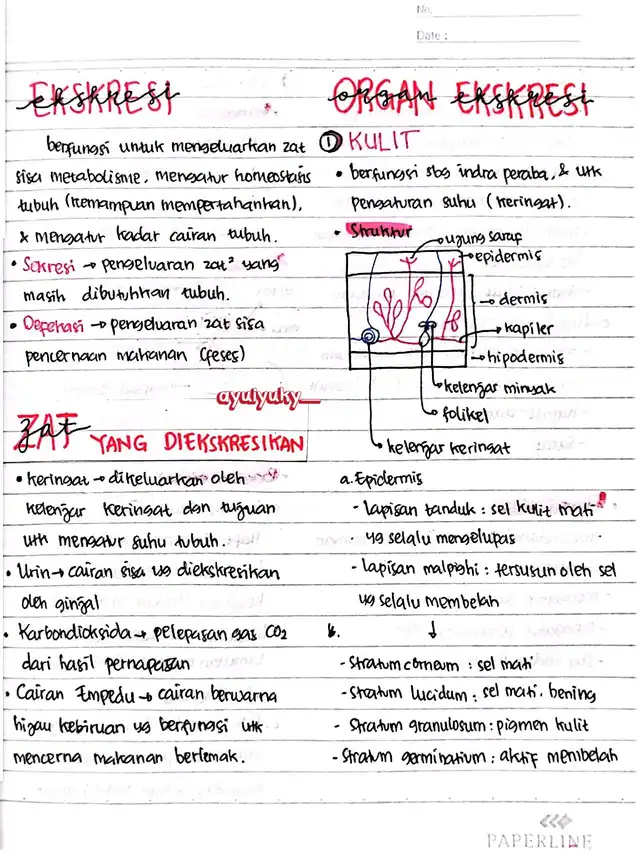 No.
Date :
EKSKRESI
ekskresi
berfungsi untuk mengeluarkan zat
sisa metabolisme, mengatur homeostasis
tubuh (kemampuan mempertahankan),
& mengatur kadar cairan tubuh.
• Sekresi → pengeluaran zat² yang
masih dibutuhkan tubuh.
• Defekasi → pengeluaran zat sisa
pencernaan makanan (feses)
ayuiyuky__
ZAT
zat
YANG DIEKSKRESIKAN
• keringat → dikeluarkan oleh
kelenjar keringat dan tujuan
utk mengatur suhu tubuh.
• Urin → cairan sisa yg diekskresikan
oleh ginjal
• Karbondioksida → pelepasan gas CO2
dari hasil pernapasan
• Cairan Empedu → cairan berwarna
hijau kebiruan yg berfungsi utk
mencerna makanan berlemak.
ORGAN EKSKRESI
organ ekskresi
① KULIT
• berfungsi sbg indra peraba, & utk
pengaturan suhu (keringat).
• Struktur
ujung saraf
epidermis
dermis
kapiler
hipodermis
kelenjar minyak
folikel
kelenjar keringat
a. Epidermis
- lapisan tanduk : sel kulit mati
yg selalu mengelupas
- lapisan malpighi : tersusun oleh sel
yg selalu membelah
b. ↓
- Stratum corneum : sel mati
- Stratum lucidum : sel mati, bening
- Stratum granulosum : pigmen kulit
- Stratum germinatium : aktif membelah
PAPERLINE